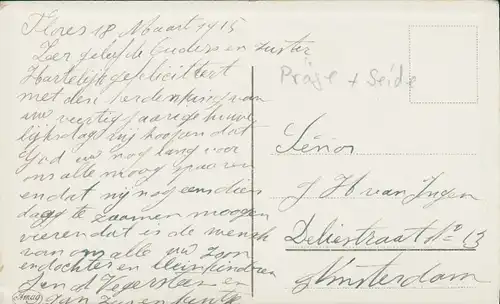 Flores 18 Maart 1915
Zeer geliefde Ouders en zuster
Hartelijk gefeliciteert
met den herdenking van
uw veertig jaarige huwe
lijksdag wij hoopen dat
God uw nog lang voor
ons alle moog spaaren
en dat wij nog eens dien
dag te zaamen moogen
vieren dat is de wensch
van ons alle uw zoon
en dochter en kleinkindren
Jan
en
Jan
Präge + Seide
Señor
J H van Ingen
Deliestraat No 13
Amsterdam